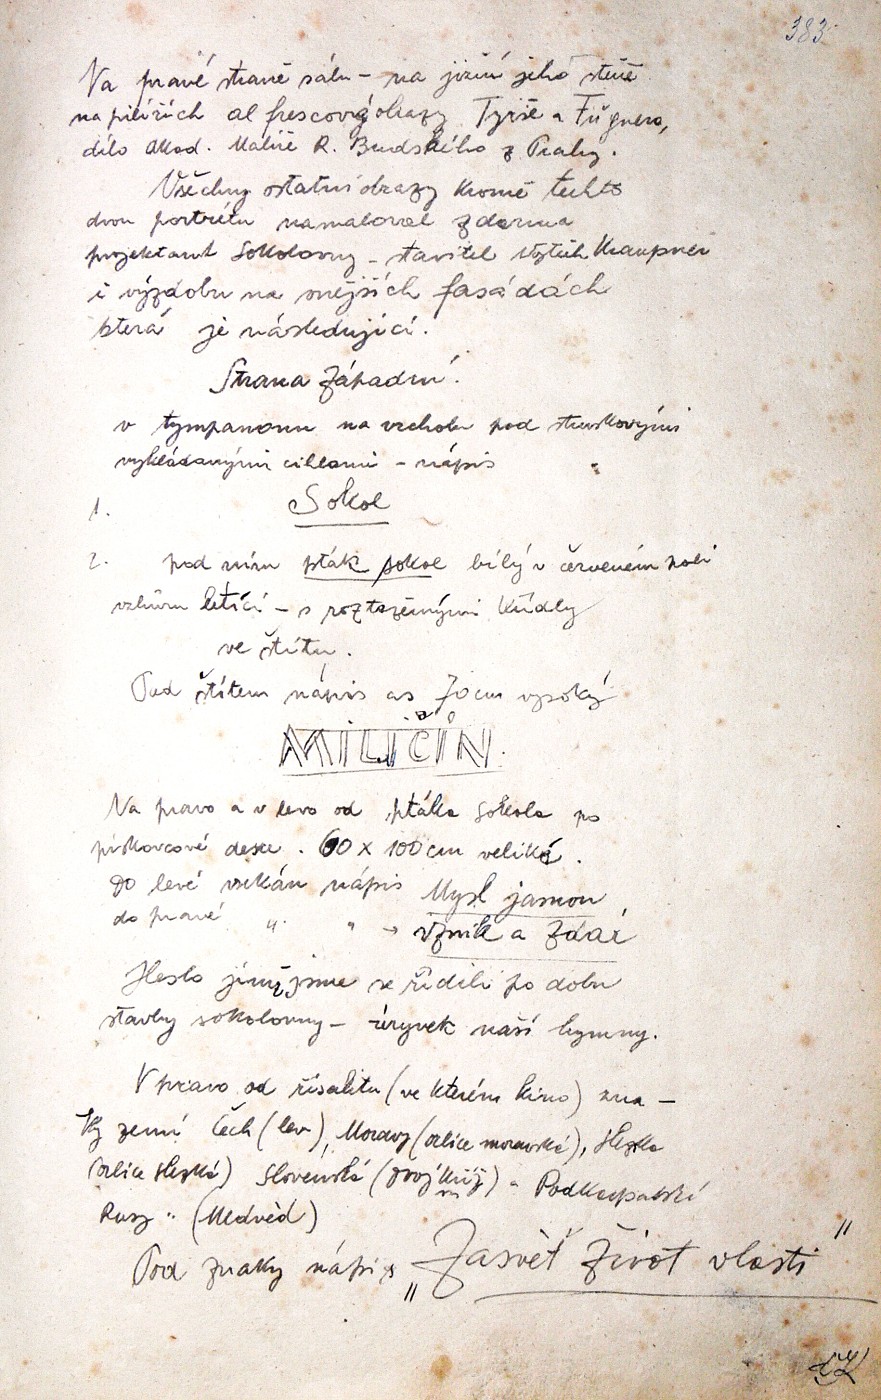 383
Na pravé straně sálu – na jižní jeho stěně
na pilířích al frescové obrazy Tyrše a Fügnera,
dílo akad. malíře R. Budského z Prahy.
Všechny ostatní obrazy kromě těchto
dvou portrétu namaloval zdarma
projektant Sokolovny – stavitel Kraupner
i výzdobu na vnějších fasádách
která je následující.
Strana Západní.
v tympanonu na vrcholu pod
vykládanými cihlami – nápis
1. Sokol
2. pod ním pták sokol bílý v červeném poli
vzhůru letící – s roztaženými křídly
ve štítu.
Pod štítem nápis as 70 cm vysoký
MILIČÍN.
Na pravo a v levo od ptáka sokola po
pískovcové desce. 60 x 100 cm veliké.
Do levé vsekán nápis Mysl jasnou
do pravé " " → vznik a zdar
Heslo jímž jsme se řídili po dobu
stavby sokolovny – úryvek naší hymny.
V pravo od risalitu (ve kterém kino) zna –
ky zemí Čech (lev), Moravy (orlice moravská), Slezska
orlice slezská) Slovenska (dvojkříž) a Podkarpatské
Rusy. (Medvěd)
Pod znaky nápis „Zasvěť život vlasti"